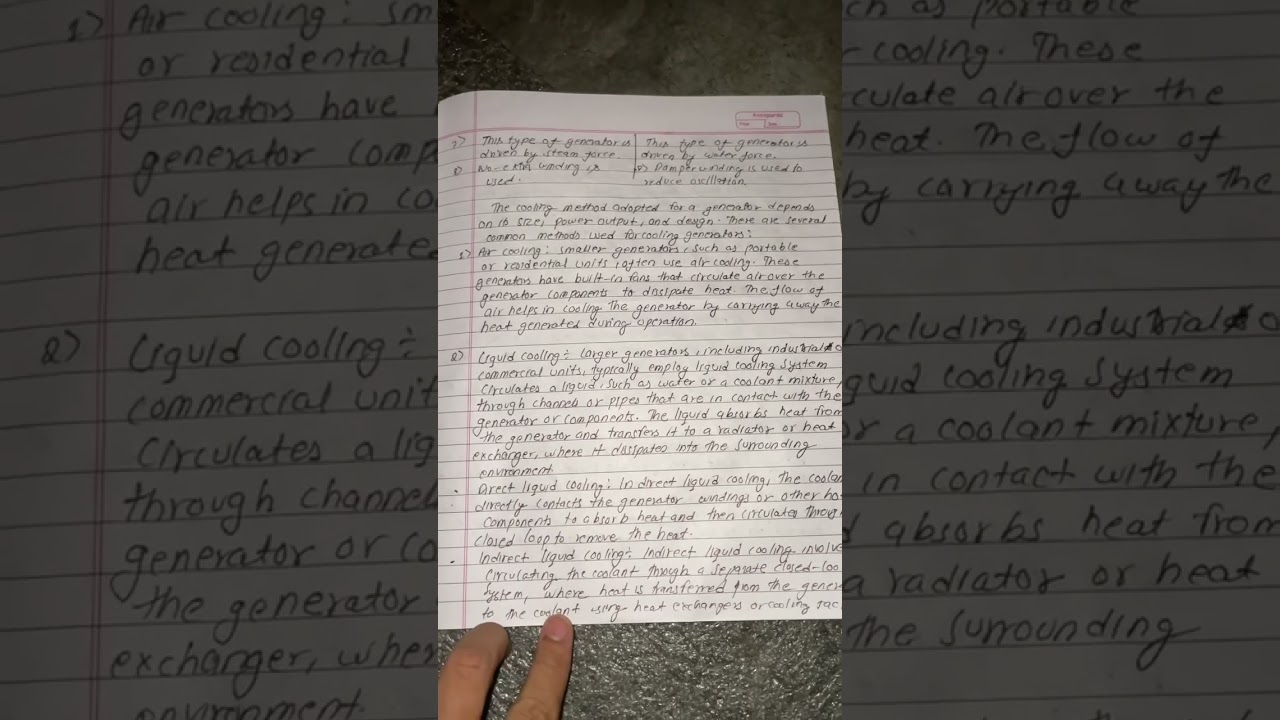 7) This type of generator is driven by steam force. | This type of generator is driven by water force.
8) No extra winding is used. | 8) Damper winding is used to reduce oscillation.
The cooling method adopted for a generator depends
on its size, power output, and design. There are several
common methods used for cooling generators:
1) Air cooling: smaller generators, such as portable
or residential units, often use air cooling. These
generators have built-in fans that circulate air over the
generator components to dissipate heat. The flow of
air helps in cooling The generator by carrying away the
heat generated during operation.
2) Liquid cooling: Larger generators, including industrial
commercial units, typically employ liquid cooling System
Circulates a liquid, such as water or a coolant mixture,
through channels or pipes that are in contact with the
generator or components. The liquid absorbs heat from
the generator and transfers it to a radiator or heat
exchanger, where it dissipates into the surrounding
environment.
. Direct liquid cooling: In direct liquid cooling, the coolan
directly contacts the generator windings or other ho
components to absorb heat and then circulates throug
closed loop to remove the heat.
. Indirect liquid cooling: Indirect liquid cooling involve
circulating the coolant through a separate closed-loo
system, where heat is transferred from the gener
to the coolant using heat exchangers or cooling jac